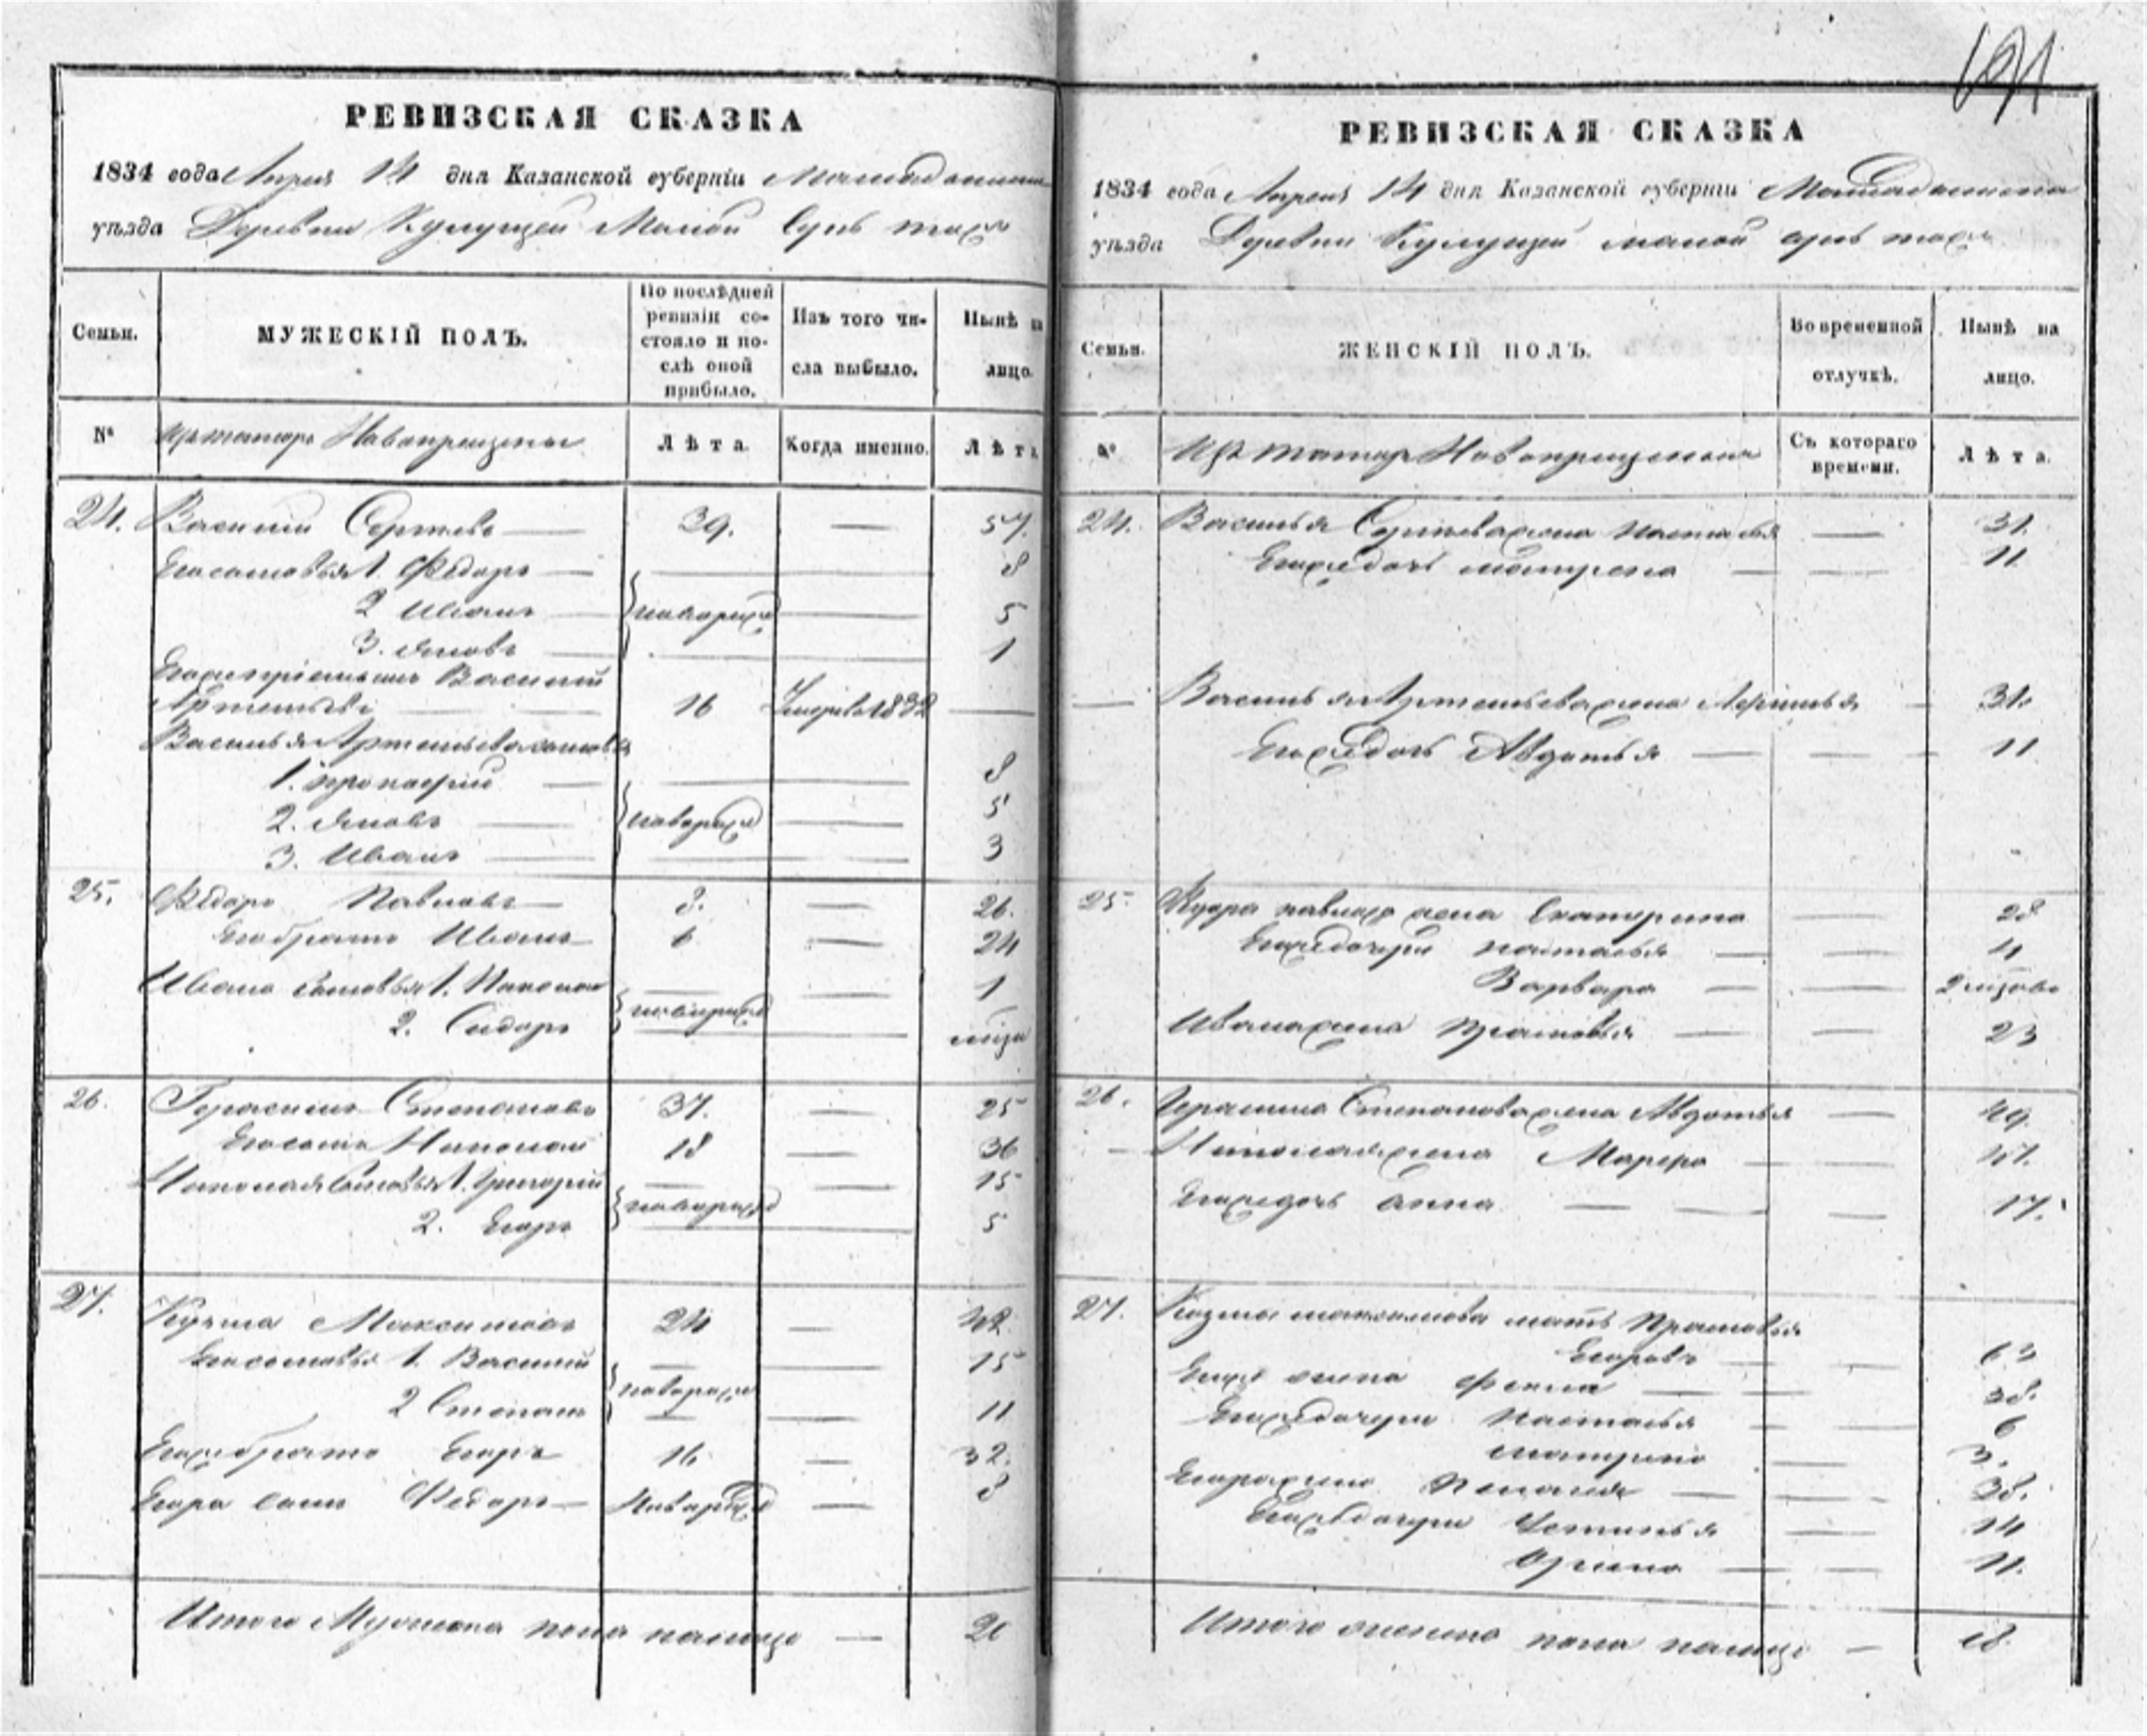 191
РЕВИЗСКАЯ СКАЗКА
1834 года Апреля 14 дня Казанской губерніи
уѣзда Деревни Малой тожъ
Семьи.
МУЖЕСКІЙ ПОЛЪ.
По послѣдней ревизіи состояло и послѣ оной прибыло.
Изъ того числа выбыло.
Нынѣ на лицо.
№ Изъ татаръ Новокрещены
Лѣта. Когда именно. Лѣта
24. Василий Сергѣевъ — 39. — 57.
Его сыновья 1. Федоръ — — 8
2 Иванъ — новорожд — 5
3. Яковъ — — 1
Егоже Василий
Артемьевъ 16 1832 —
Василья Артемьева сыновья
1. Прокофий — — 8
2. Яковъ — новорожд — 5
3. Иванъ — — 3
25. Федоръ Павловъ — 8. — 26.
Его братъ Иванъ — 6 — 24
Ивана сыновья 1. Николай — 1
2. Сидоръ новорожд —
26. Герасимъ Степановъ 37. — 25
Его сынъ Николай 18 — 36
Николая сыновья 1. Григорий — 15
2. Егоръ новорожд — 5
27. Кузма Максимовъ 24 — 42
Его сыновья 1. Василий — 15
2 Степанъ новорожд — 11
Егоже братъ Егоръ 16 — 32.
Егора сынъ Федоръ — Новорожд — 8
Итого Мужеска пола налицо — 20
РЕВИЗСКАЯ СКАЗКА
1834 года Апреля 14 дня Казанской губерніи
уѣзда Деревни малой тожъ
Семьи.
ЖЕНСКІЙ ПОЛЪ.
Во временной отлучкѣ.
Нынѣ на лицо.
№ Изъ татаръ Новокрещены
Съ котораго времени.
Лѣта.
24. Василья Сергѣева жена Настасья — 31.
Егоже дочь Матрена — — 11
— Василья Артемьева жена — 31.
Егоже дочь Авдотья — — 11
25. Федора Павлова жена Екатерина — 28
Егоже дочери Настасья — — 4
Варвара — —
Ивана жена Прасковья — — 23
26. Герасима Степанова жена Авдотья — 49.
— Николая жена Марфа — — 47.
Егоже дочь Анна — — — 17.
27. Козмы Максимова мать Прасковья
Егорова — — 63
Егоже жена Фекла — — 38.
Егоже дочери Настасья — — 6
Матрена — 3.
Егора жена Пелагея — — 38.
Егоже дочери Устинья — 14
Орина — — 11.
Итого женска пола налицо — 18